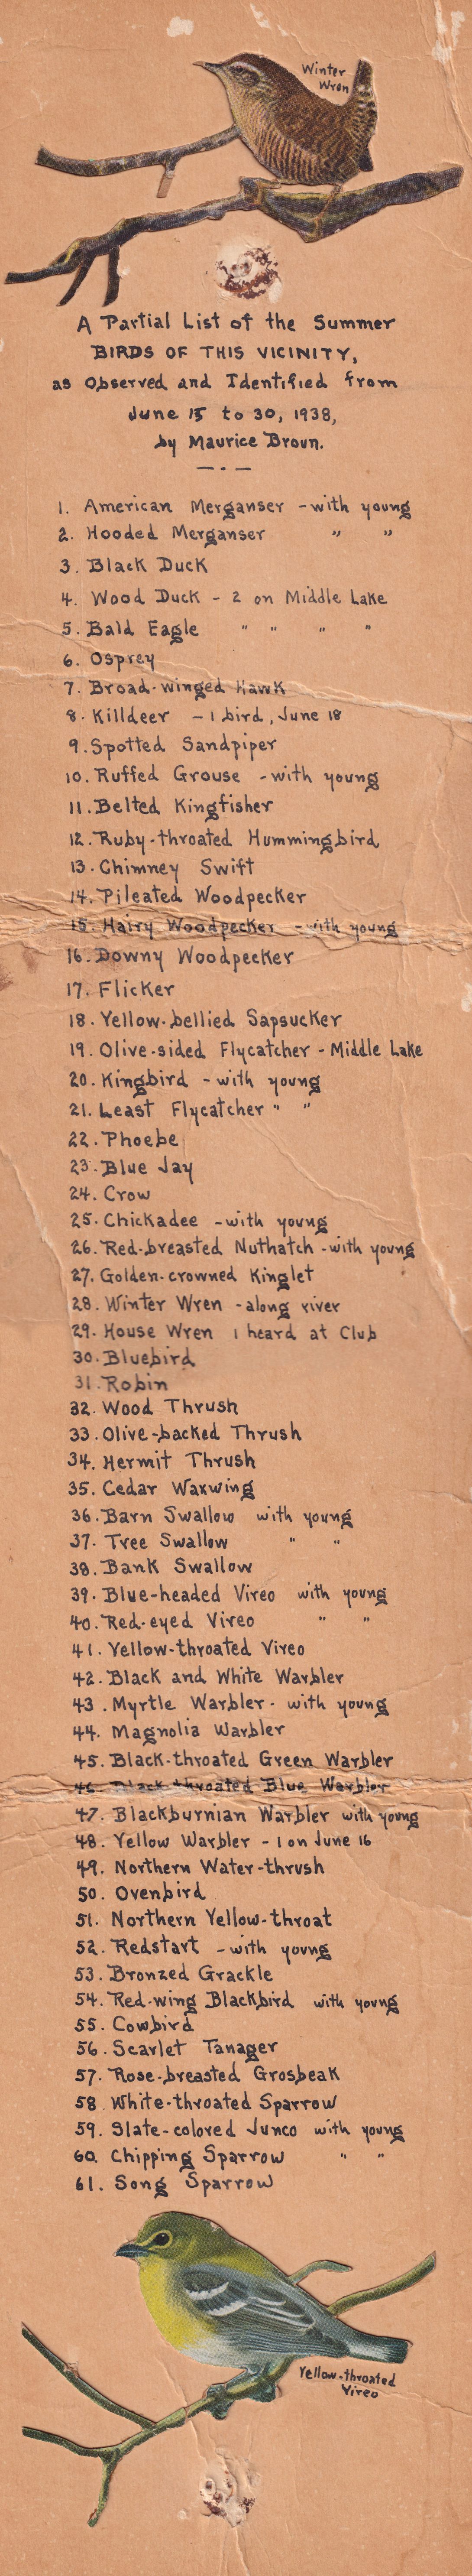 Winter
Wren
A Partial List of the Summer
BIRDS OF THIS VICINITY,
as Observed and Identified from
June 15 to 30, 1938,
by Maurice Broun.
1. American Merganser - with young
2. Hooded Merganser " "
3. Black Duck
4. Wood Duck - 2 on Middle Lake
5. Bald Eagle " " " "
6. Osprey
7. Broad-winged Hawk
8. Killdeer - 1 bird, June 18
9. Spotted Sandpiper
10. Ruffed Grouse - with young
11. Belted Kingfisher
12. Ruby-throated Hummingbird
13. Chimney Swift
14. Pileated Woodpecker
15. Hairy Woodpecker - with young
16. Downy Woodpecker
17. Flicker
18. Yellow-bellied Sapsucker
19. Olive-sided Flycatcher - Middle Lake
20. Kingbird - with young
21. Least Flycatcher " "
22. Phoebe
23. Blue Jay
24. Crow
25. Chickadee - with young
26. Red-breasted Nuthatch - with young
27. Golden-crowned Kinglet
28. Winter Wren - along river
29. House Wren 1 heard at Club
30. Bluebird
31. Robin
32. Wood Thrush
33. Olive-backed Thrush
34. Hermit Thrush
35. Cedar Waxwing
36. Barn Swallow with young
37. Tree Swallow " "
38. Bank Swallow
39. Blue-headed Vireo with young
40. Red-eyed Vireo " "
41. Yellow-throated Vireo
42. Black and White Warbler
43. Myrtle Warbler - with young
44. Magnolia Warbler
45. Black-throated Green Warbler
46. Black-throated Blue Warbler
47. Blackburnian Warbler with young
48. Yellow Warbler - 1 on June 16
49. Northern Water-thrush
50. Ovenbird
51. Northern Yellow-throat
52. Redstart - with young
53. Bronzed Grackle
54. Red-wing Blackbird with young
55. Cowbird
56. Scarlet Tanager
57. Rose-breasted Grosbeak
58. White-throated Sparrow
59. Slate-colored Junco with young
60. Chipping Sparrow " "
61. Song Sparrow
Yellow-throated
Vireo